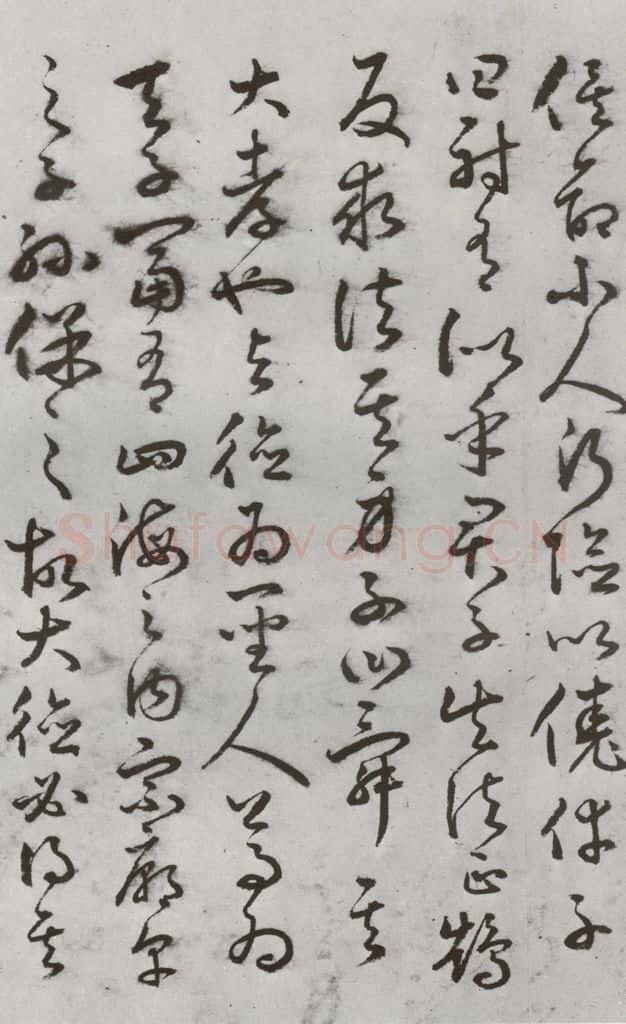 俟命小人行險以僥倖子
曰射有似乎君子失諸正鵠
反求諸其身子曰舜其
大孝也與德為聖人尊為
天子富有四海之內宗廟享
之子孫保之故大德必得其
Shufawang.CN